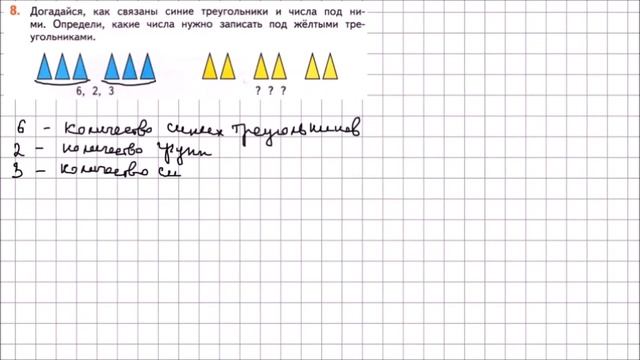 8. Догадайся, как связаны синие треугольники и числа под ни-
ми. Определи, какие числа нужно записать под жёлтыми тре-
угольниками.
6, 2, 3
? ? ?
6 - количество синих треугольников
2 - количество групп
3 - количество си